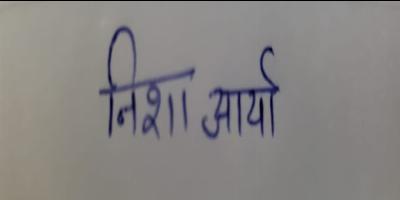 निशा आर्या